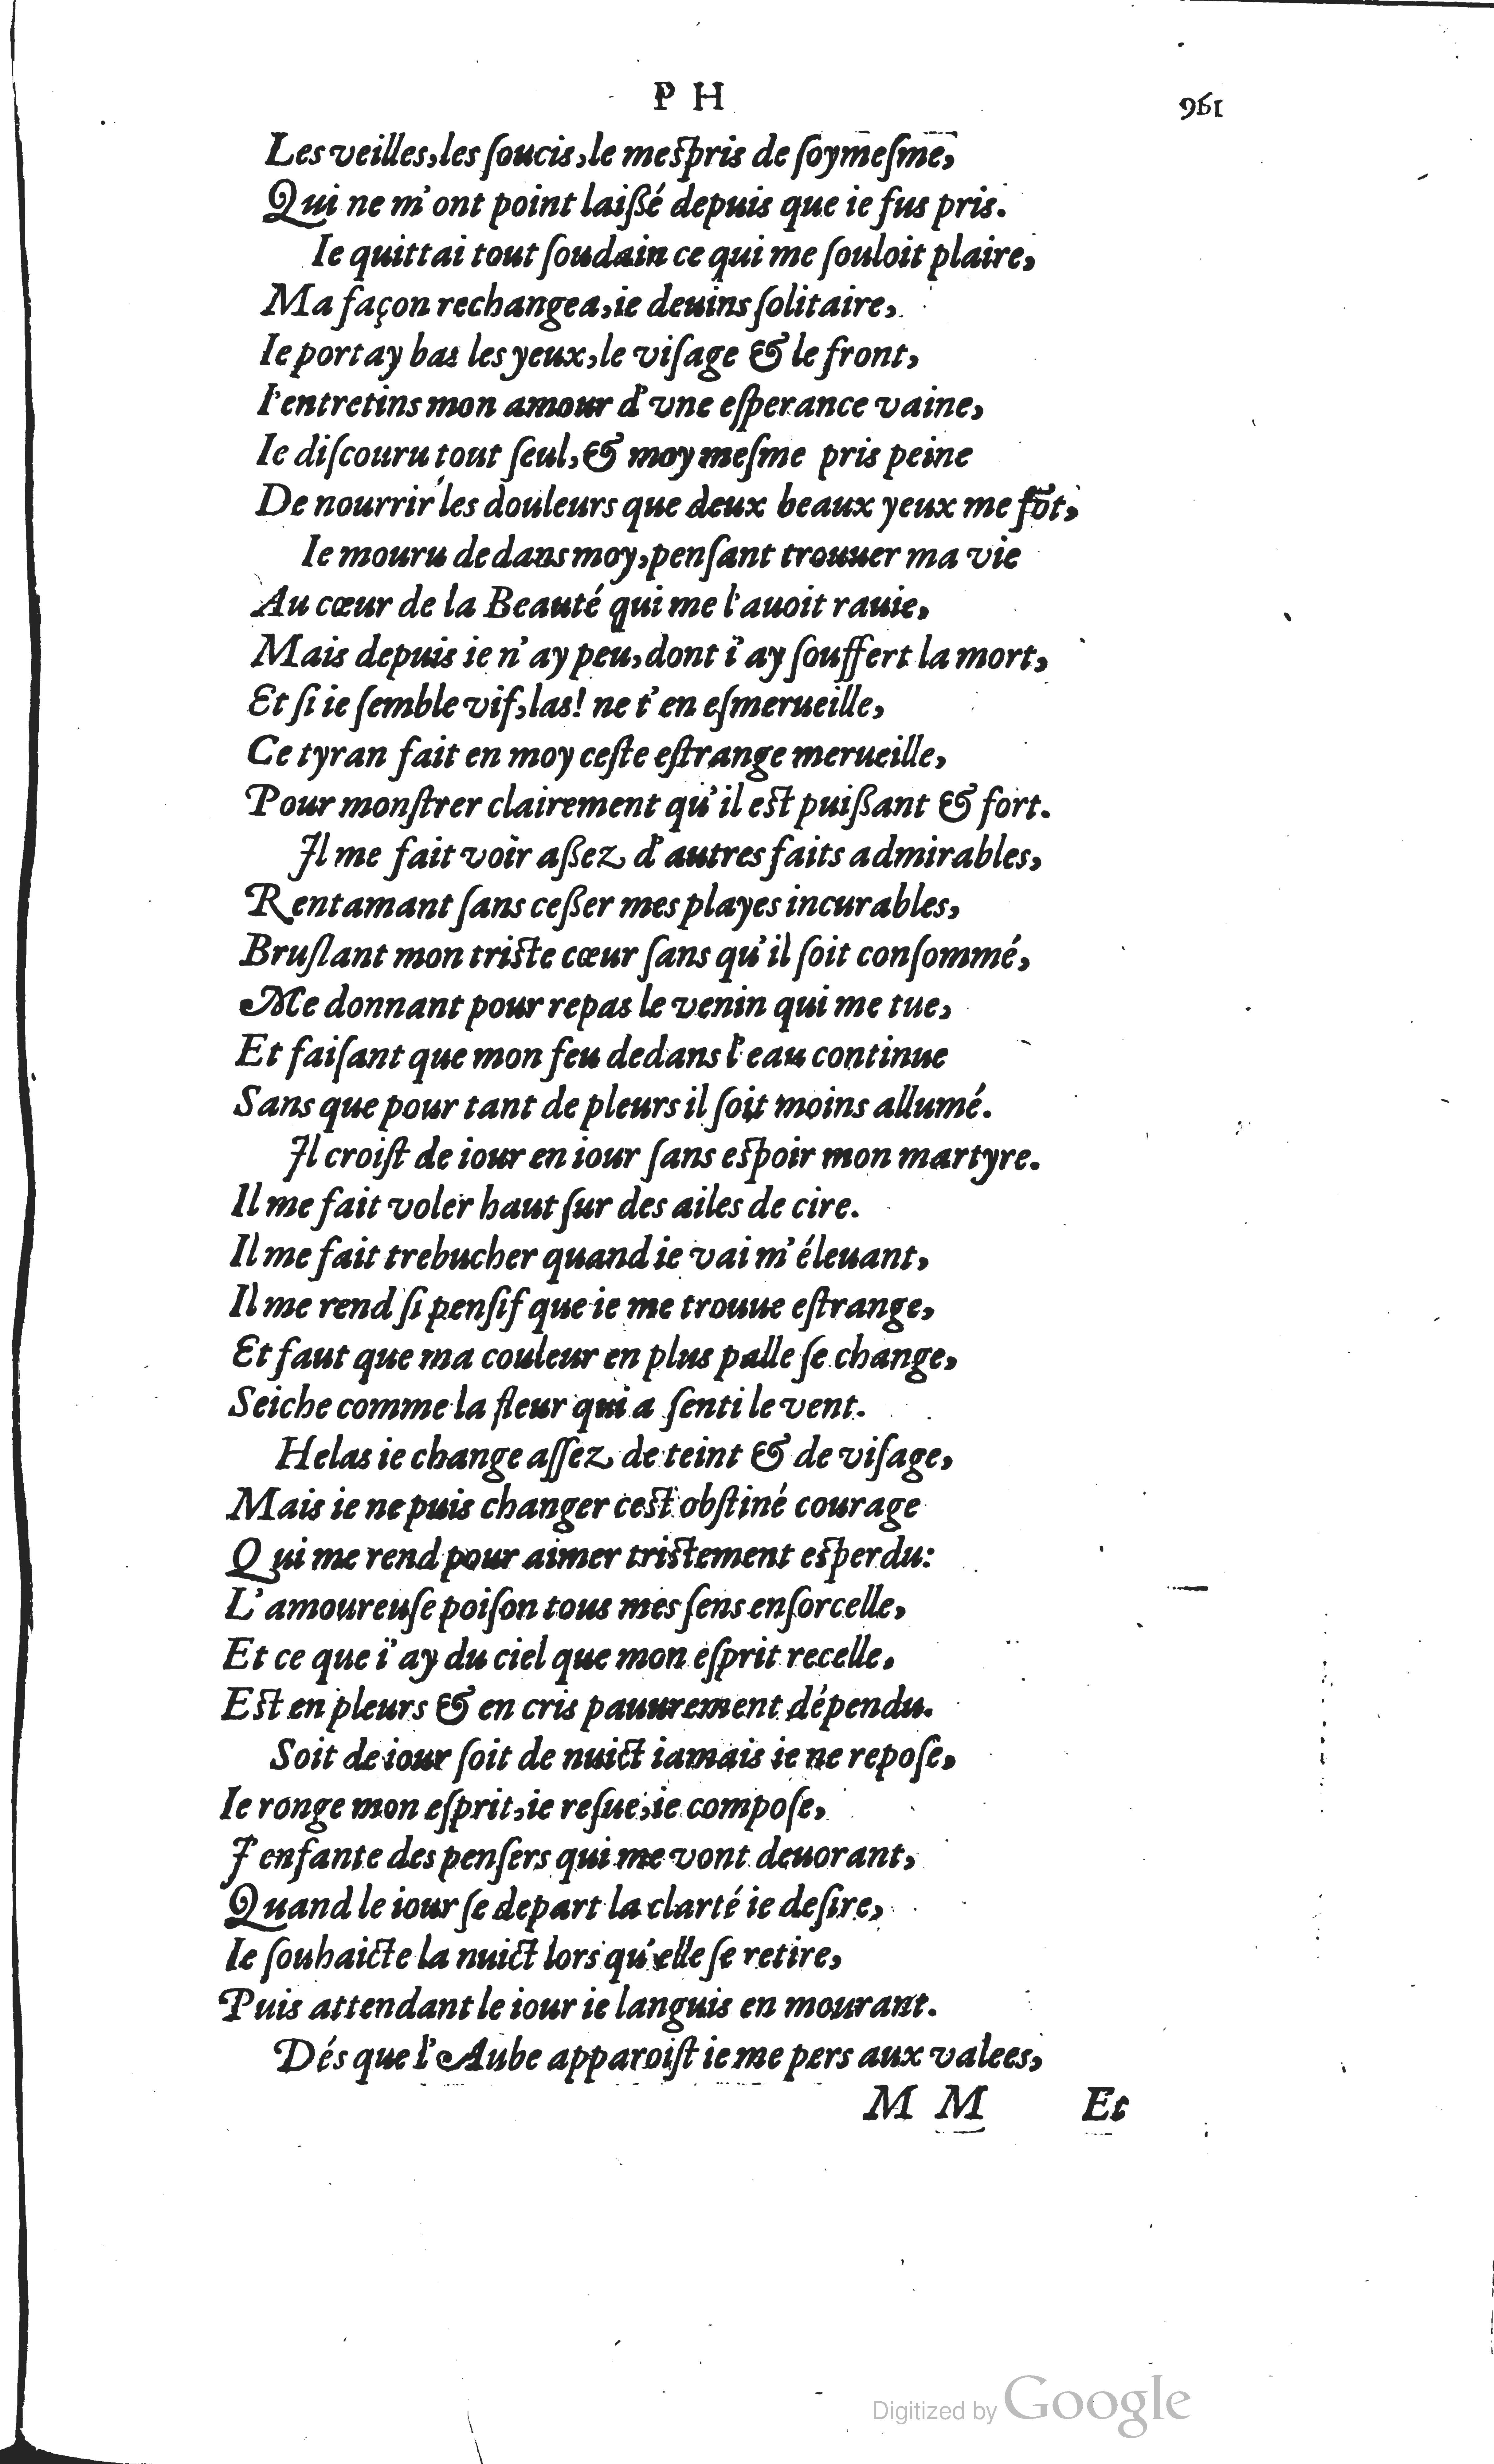 P H 196
Les veilles, les ſoucis, le meſpris de ſoymeſme,
Qui ne m'ont point laißé depuis que ie fus pris.
Ie quittai tout ſoudain ce qui me ſouloit plaire,
Ma façon rechangea, ie deuins ſolitaire,
Ie portay bas les yeux, le viſage & le front,
I'entretins mon amour d'vne eſperance vaine,
Ie diſcouru tout ſeul, & moymeſme pris peine
De nourrir les douleurs que deux beaux yeux me fõt,
Ie mouru dedans moy, penſant trouuer ma vie
Au cœur de la Beauté qui me l'auoit rauie,
Mais depuis ie n'ay peu, dont i'ay ſouffert la mort,
Et ſi ie ſemble vif, las! ne t'en eſmerueille,
Ce tyran fait en moy ceſte eſtrange merueille,
Pour monſtrer clairement qu'il eſt puißant & fort.
Il me fait voir aßez d'autres faits admirables,
Rentamant ſans ceßer mes playes incurables,
Bruſlant mon triſte cœur ſans qu'il ſoit conſommé,
Me donnant pour repas le venin qui me tue,
Et faiſant que mon feu dedans l'eau continue
Sans que pour tant de pleurs il ſoit moins allumé.
Il croiſt de iour en iour ſans eſpoir mon martyre.
Il me fait voler haut ſur des ailes de cire.
Il me fait trebucher quand ie vai m'éleuant,
Il me rend ſi penſif que ie me trouue eſtrange,
Et faut que ma couleur en plus palle ſe change,
Seiche comme la fleur qui a ſenti le vent.
Helas ie change aſſez de teint & de viſage,
Mais ie ne puis changer ceſt obſtiné courage
Qui me rend pour aimer triſtement eſperdu:
L'amoureuſe poiſon tous mes ſens enſorcelle,
Et ce que i'ay du ciel que mon eſprit recelle,
Eſt en pleurs & en cris pauurement dépendu.
Soit de iour ſoit de nuict iamais ie ne repoſe,
Ie ronge mon eſprit, ie reſue, ie compoſe,
I'enfante des penſers qui me vont deuorant,
Quand le iour ſe depart la clarté ie deſire,
Ie ſouhaicte la nuict lors qu'elle ſe retire,
Puis attendant le iour ie languis en mourant.
Dés que l'Aube apparoiſt ie me pers aux valees,
M M Et
Digitized by Google